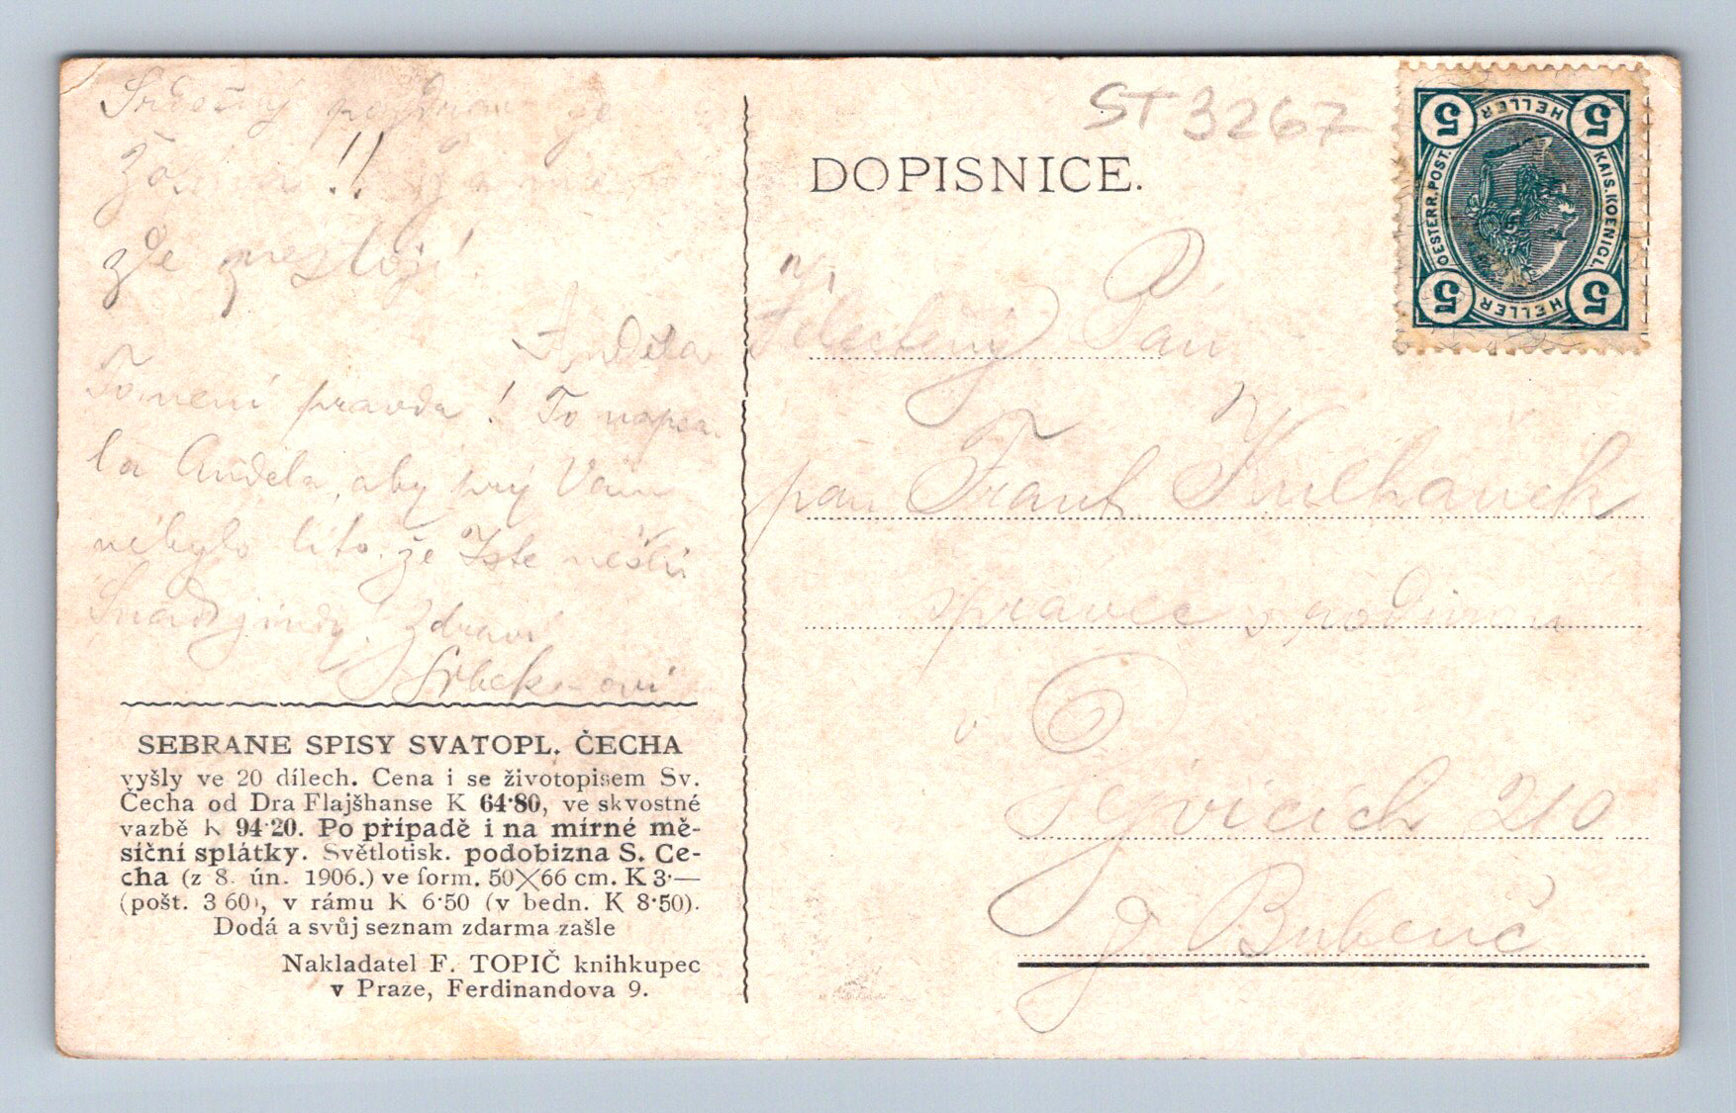 Srdečný pozdrav
!!
zde
Anděla
To není pravda! To napsa-
la Anděla, aby prý Vám
nebylo líto, že Jste nešli
Snad jindy! Zdraví
SEBRANE SPISY SVATOPL. ČECHA
vyšly ve 20 dílech. Cena i se životopisem Sv.
Čecha od Dra Flajšhanse K 64·80, ve skvostné
vazbě K 94·20. Po případě i na mírné mě-
síční splátky. Světlotisk. podobizna S. Če-
cha (z 8. ún. 1906.) ve form. 50×66 cm. K 3·—
(pošt. 3 60), v rámu K 6·50 (v bedn. K 8·50).
Dodá a svůj seznam zdarma zašle
Nakladatel F. TOPIČ knihkupec
v Praze, Ferdinandova 9.
ST 3267
DOPISNICE.
Pán
pan Frant Kulhánek
správce s rodinou
v
210
Bubenč
5 HELLER 5
OESTERR. POST. KAIS. KOENIGL.
5 HELLER 5